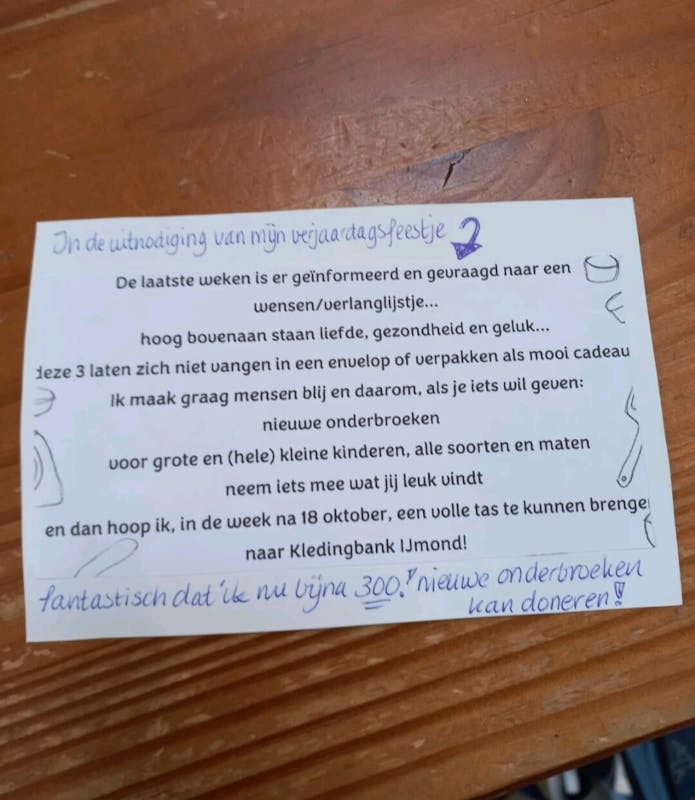 In de uitnodiging van mijn verjaardagsfeestje
De laatste weken is er geïnformeerd en gevraagd naar een
wensen/verlanglijstje...
hoog bovenaan staan liefde, gezondheid en geluk...
deze 3 laten zich niet vangen in een envelop of verpakken als mooi cadeau
Ik maak graag mensen blij en daarom, als je iets wil geven:
nieuwe onderbroeken
voor grote en (hele) kleine kinderen, alle soorten en maten
neem iets mee wat jij leuk vindt
en dan hoop ik, in de week na 18 oktober, een volle tas te kunnen brenge
naar Kledingbank IJmond!
fantastisch dat ik nu bijna 300! nieuwe onderbroeken
kan doneren!